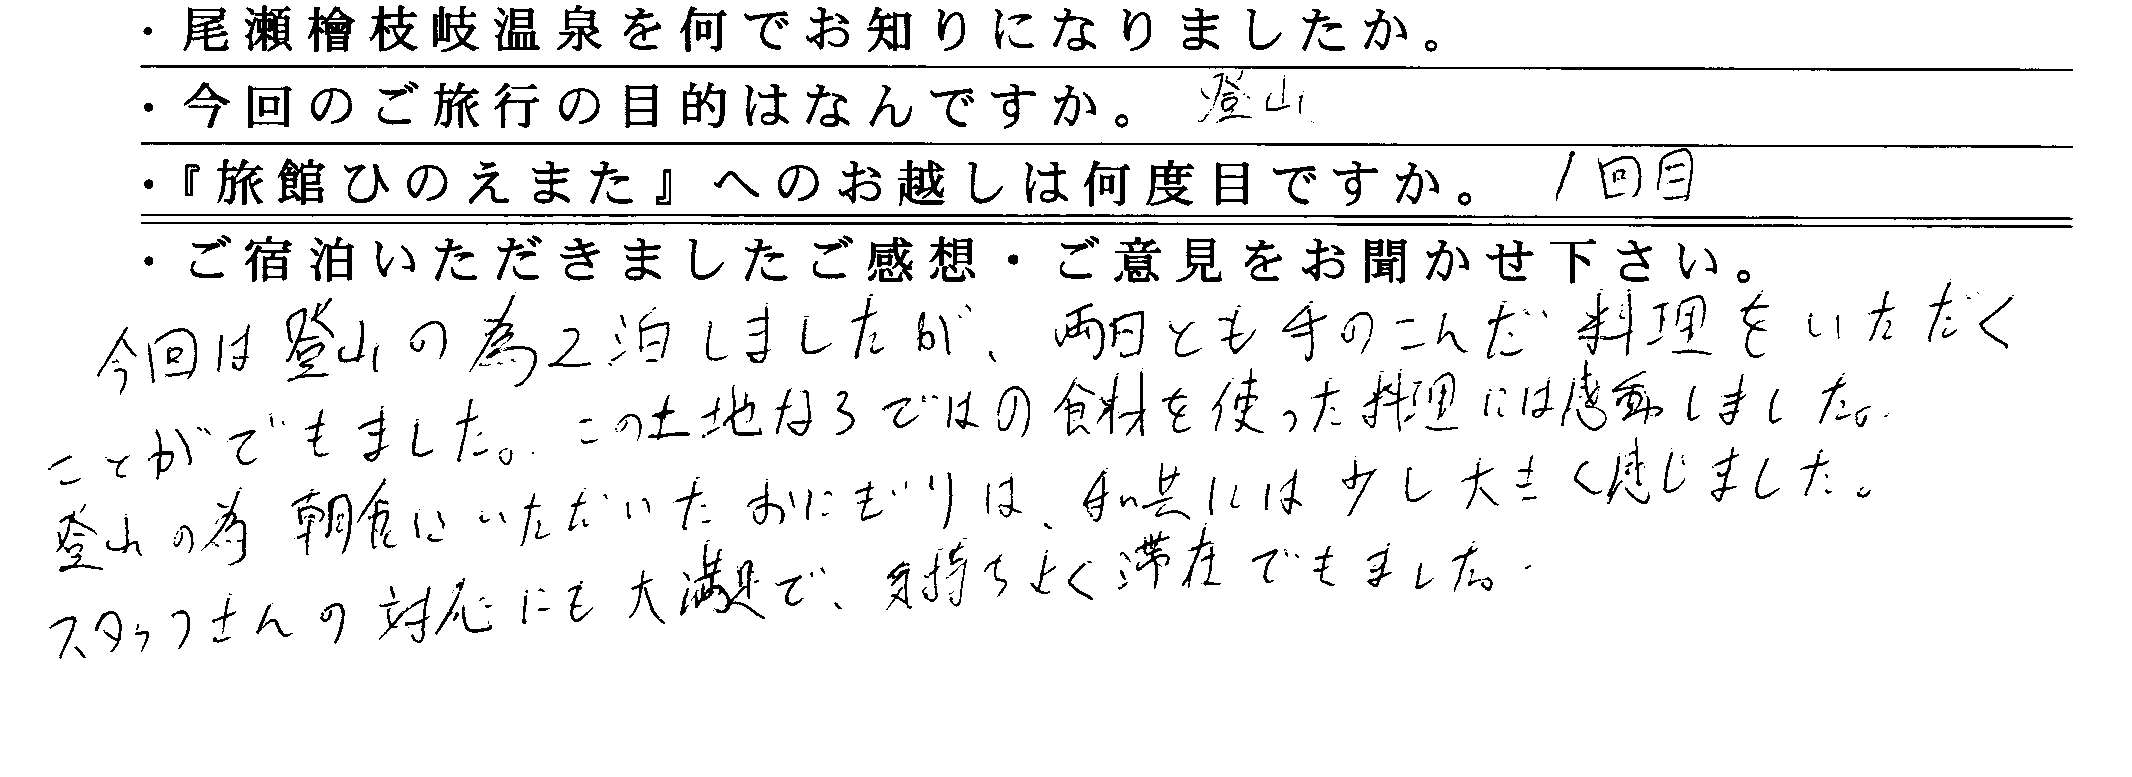 ・尾瀬檜枝岐温泉を何でお知りになりましたか。
・今回のご旅行の目的はなんですか。 登山
・『旅館ひのえまた』へのお越しは何度目ですか。 1回目
・ご宿泊いただきましたご感想・ご意見をお聞かせ下さい。
今回は登山の為2泊しましたが、両日とも手のこんだ料理をいただく
ことができました。この土地ならではの食材を使った料理には感動しました。
登山の為朝食にいただいたおにぎりは、私共には少し大きく感じました。
スタッフさんの対応にも大満足で、気持ちよく滞在できました。